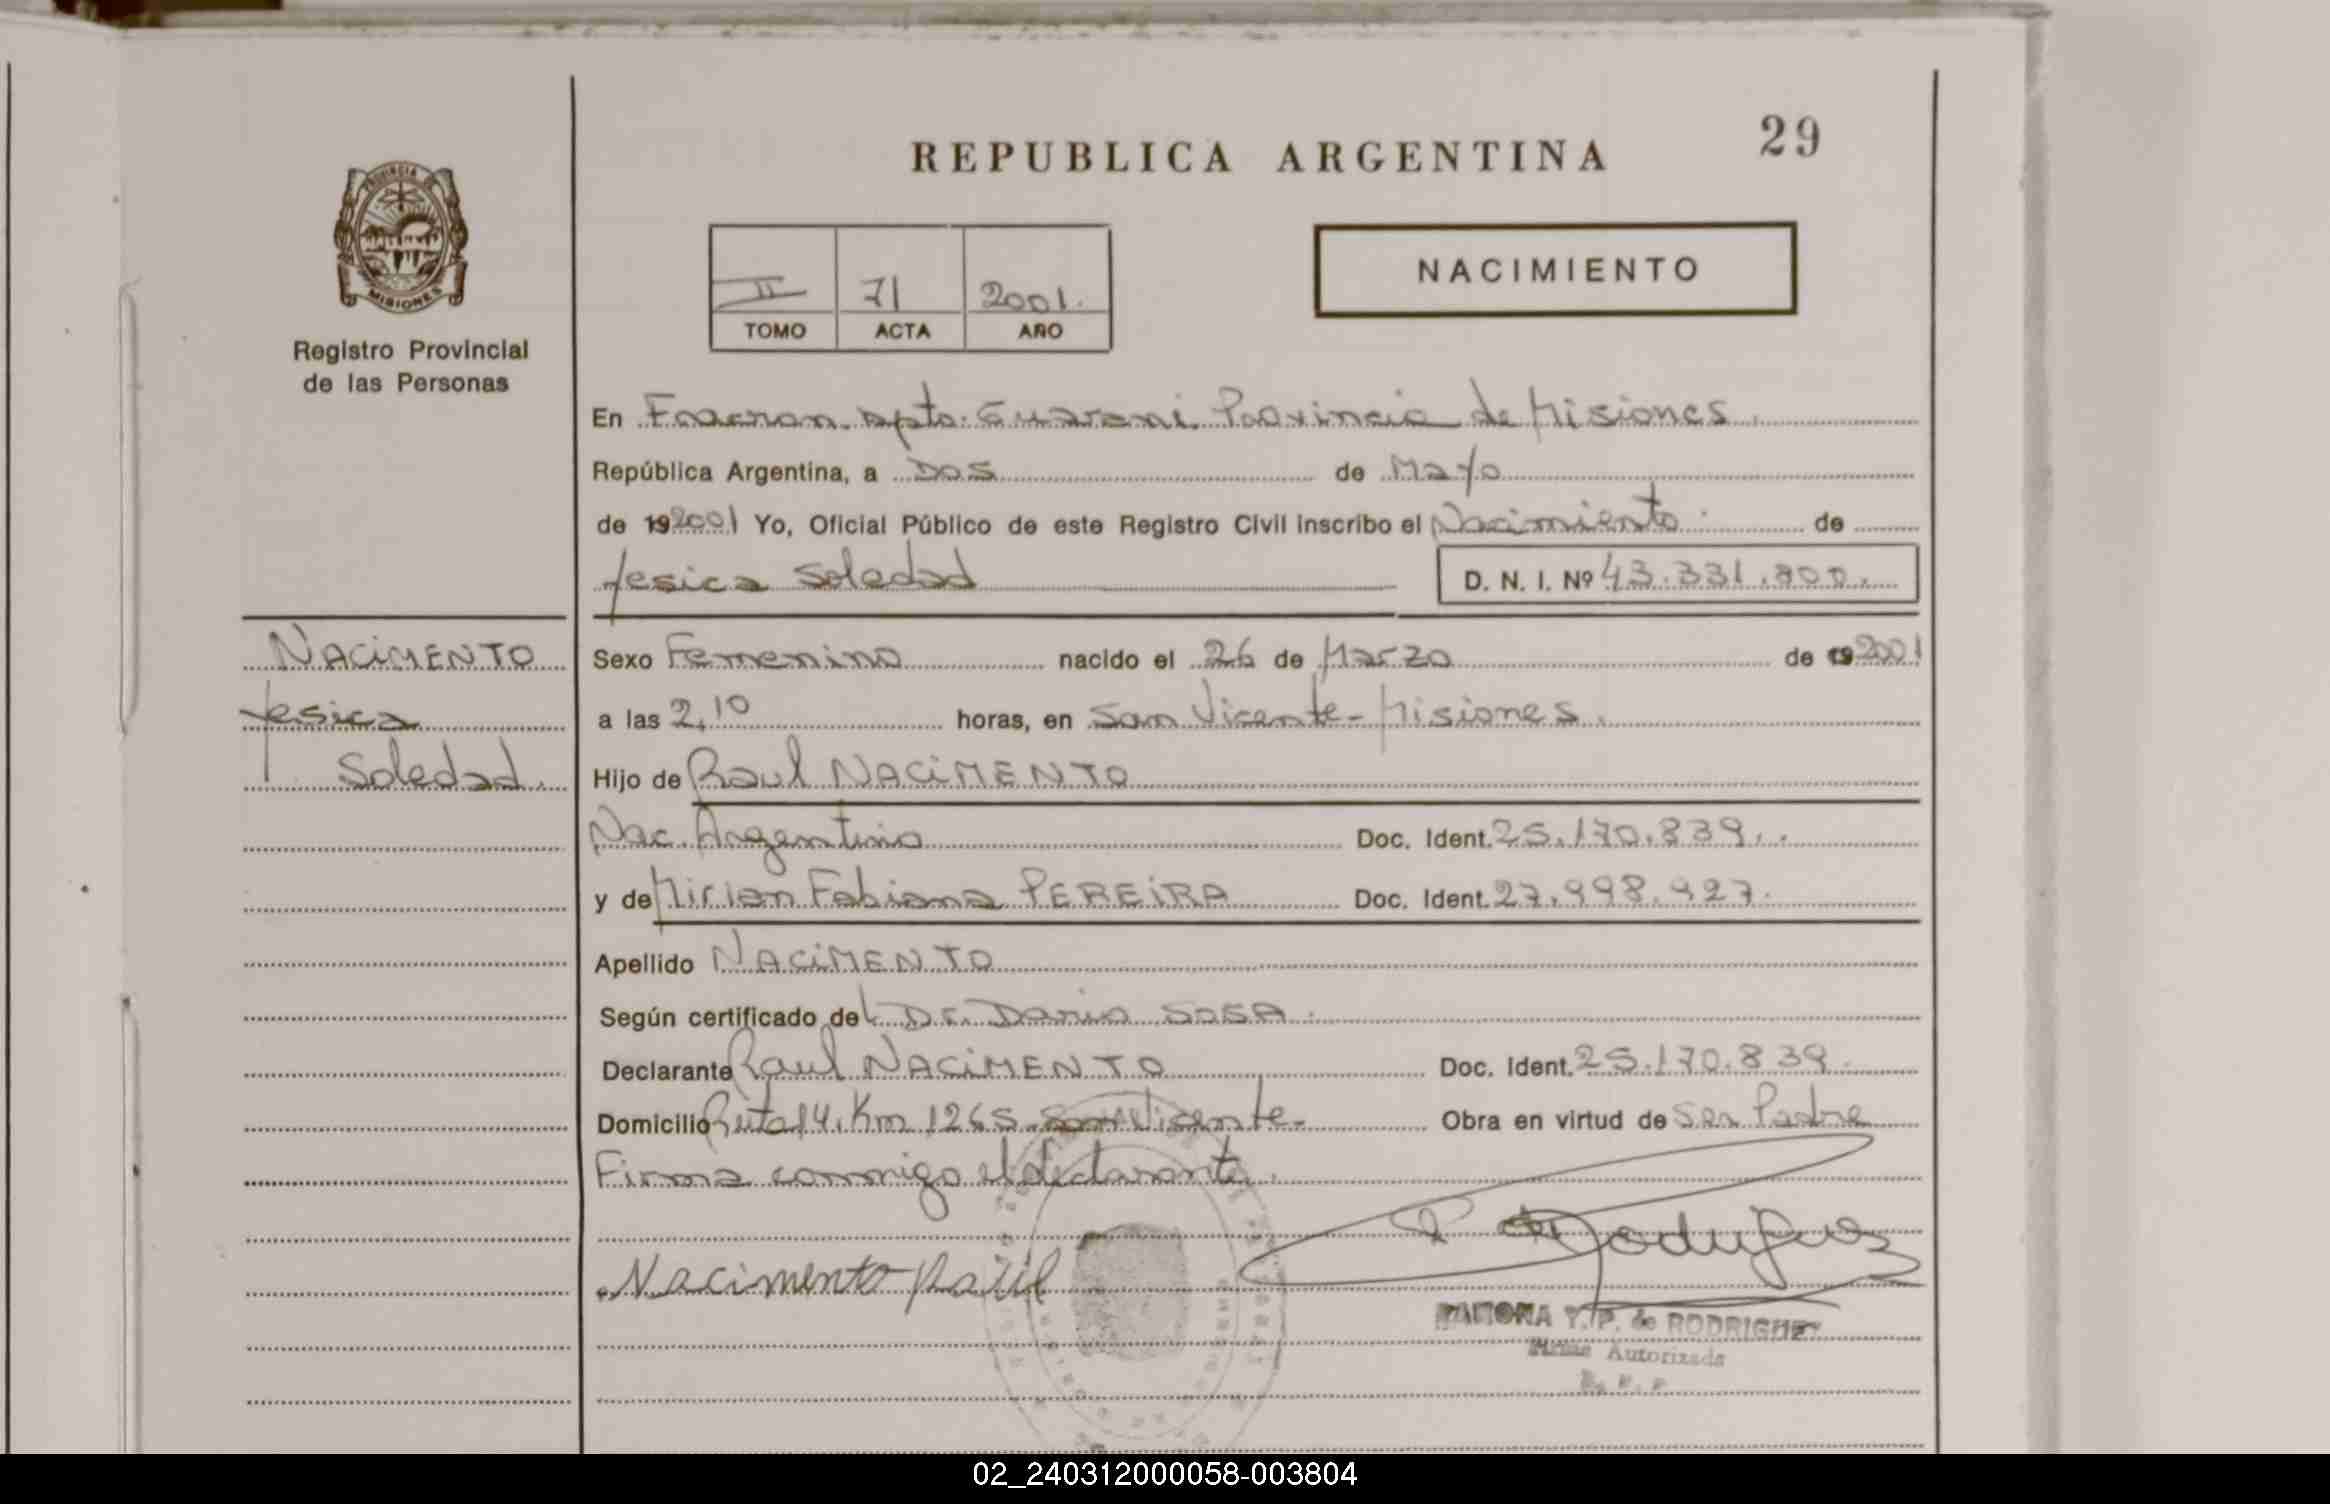 29
REPUBLICA ARGENTINA
PROVINCIA DE
MISIONES
Registro Provincial
de las Personas
II 71 2001.
TOMO ACTA AÑO
NACIMIENTO
En Fracran. Dpto. Guarani. Provincia de Misiones.
República Argentina, a Dos de Mayo
de 192001 Yo, Oficial Público de este Registro Civil inscribo el Nacimiento de
Jesica Soledad
D. N. I. Nº 43.331.800.
NACiMENTO
Jesica
Soledad.
Sexo Femenino nacido el 26 de Marzo de 192001
a las 2,10 horas, en San Vicente-Misiones.
Hijo de Raul NACiMENTO
Nac. Argentino Doc. Ident. 25.170.839.
y de Mirian Fabiana PEREiRA Doc. Ident. 27.998.927.
Apellido NACiMENTO
Según certificado del Dr. Dario SOSA.
Declarante Raul NACiMENTO Doc. Ident. 25.170.839.
Domicilio Ruta 14. Km 1265. San Vicente- Obra en virtud de Ser Padre
Firma conmigo el declarante.
Nacimento Raúl
Rodriguez
RAMONA Y. P. de RODRIGUEZ
Firma Autorizada
R. P. P.
02_240312000058-003804